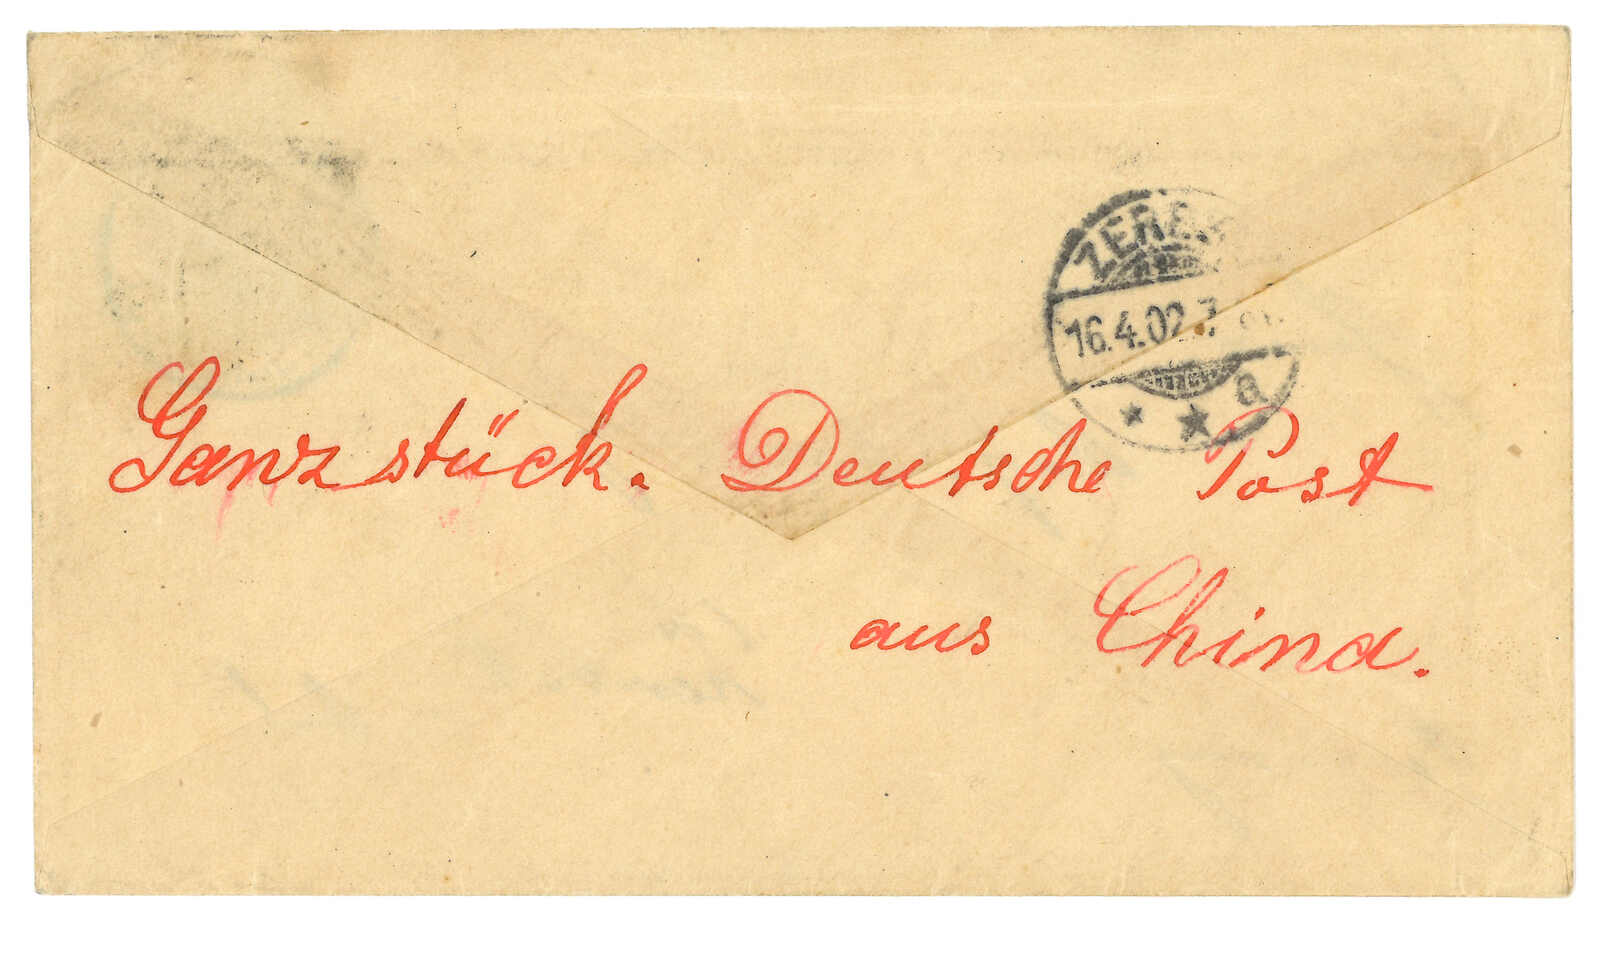 16.4.02.7
a
Ganzstück. Deutsche Post
aus China.